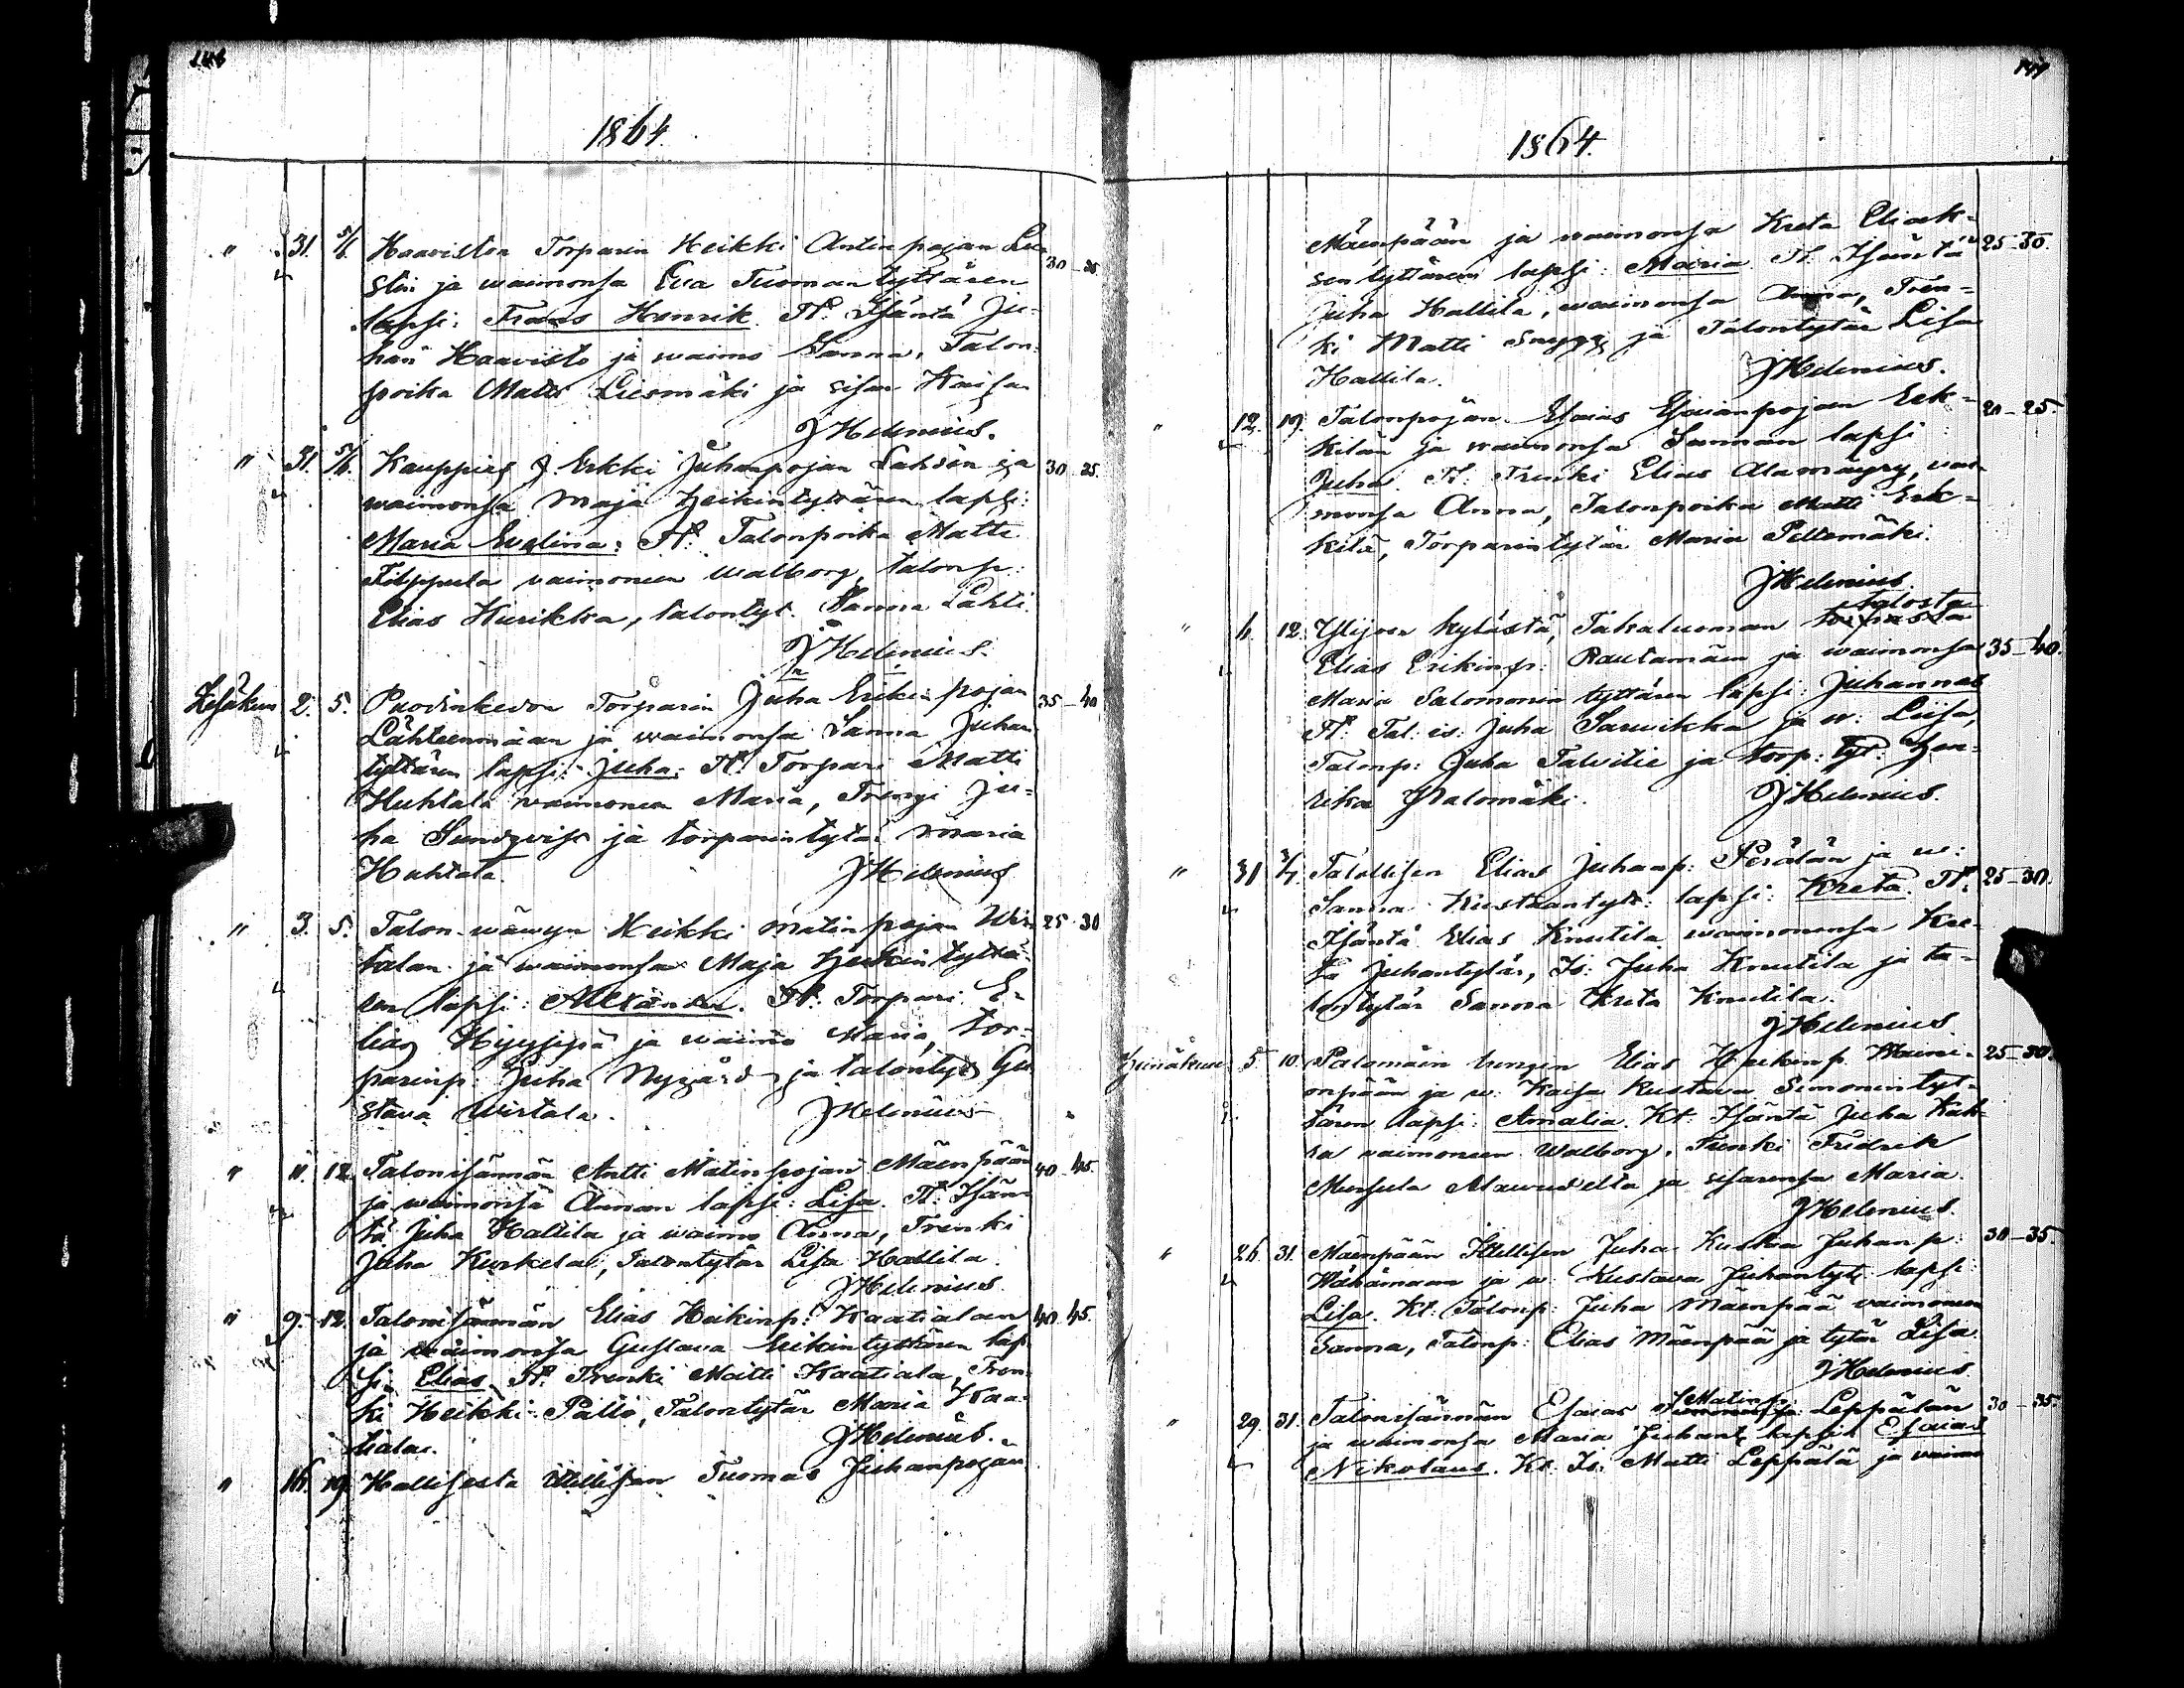 148
1864.
" 31. 5/6. Haaviston Torparin Heikki Antinpojan Lu- 30-35
stin ja waimonsa Eva Tuomantyttären
lapsi: Frans Henrik. Tt. Isäntä Ju-
han Haavisto ja waimo Sanna, Talon-
poika Matti Liesmäki ja sisar Kaisa
JHelenius.
" 31. 5/6. Kauppias J. Erkki Juhanpojan Lahden ja 30-35.
waimonsa Maja Heikintyttären lapsi:
Maria Evelina: Tt: Talonpoika Matti
Filppula vaimoneen Walborg, talonp:
Elias Hirikka, talontyt. Sanna Lahti.
JHelenius.
Kesäkuu 2. 5. Torparin Juha Erikinpojan 35-40
Lähteenmäan ja waimonsa Sanna Juhan
tyttären lapsi: Juha: Tt: Torpari Matti
Huhtala waimonen Maria, Trengi Ju-
ha Sundqvist ja torparintytär Maria
Huhtala. JHelenius
" 3. 5. Talon-wäwyn Heikki Matinpojan Wir- 25-30
talan ja waimonsa Maja Heikintyttä-
ren lapsi: Alexander. Tt: Torpari E-
lias Hyyppä ja waimo Maria, tor-
parinp: Juha Nygård ja talontyt Gu
stava Wirtala. JHelenius
" 11. 12. Talonisännän Antti Matinpojan Mäenpään 40-45.
ja waimonsa Annan lapsi: Lisa. Tt. Isän-
tä Juha Hallila ja waimo Anna, Trenki
Juha Kurkela, Talontytär Lisa Hallila.
JHelenius.
" 9. 12. Talonisännän Elias Heikinp: Kaatialan 40-45.
ja waimonsa Gustava Erikintyttären lap
si: Elias. Tt. Trenki Matti Kaatiala, Tren-
ki Heikki Pallo, Talontytär Maria Kaa-
tiala. JHelenius.
" 16. 19. Hallilasta Itellisen Tuomas Juhanpojan
149
1864.
Mäenpään ja waimonsa Kreta Eliak- 25-30.
sentyttären lapsi: Maria. Tt. Isäntä
Juha Hallila, waimonsa Anna, Tren-
ki Matti ja Talontytär Lisa
Hallila. JHelenius.
" 12. 19. Talonpojan Esaias Esaianpojan Erk- 20-25.
kilän ja waimonsa Sannan lapsi
Juha. Tt: Trenki Elias Alamäyry, vai-
monsa Anna, Talonpoika Matti Erk-
kilä, Torparintytär Maria Peltomäki.
JHelenius.
talosta
" 6. 12. Ylijoen kylästä, Takaluoman torpasta
Elias Erikinp: Rautamäen ja waimonsa 35-40.
Maria Salomonin tyttären lapsi: Juhannes
Tt. Tal. is: Juha Sarvikka ja w: Liisa,
Talonp: Juha Talvitie ja torp: tyt: Hen-
rika Palomäki. JHelenius.
" 31 3/7. Talollisen Elias Juhanp: Perälän ja w: 25-30.
Sanna Kustaantyt: lapsi: Kreta. Tt.
Isäntä Elias Knutila waimonensa Kre-
ta Juhantytär, Is: Juha Knutila ja ta-
lontytär Sanna Kreta Knutila.
JHelenius.
Heinäkuu 5. 10. Palomäen Elias Heikinp. 25-30.
onpään ja w: Kaisa Kustava Simonintyt-
tären lapsi: Amalia. Kt: Isäntä Juha
vaimoneen Walborg, Trenki Fredrik
Alawudelta ja sisarensa Maria.
JHelenius.
" 26. 31. Mäenpään Itellisen Juha Kustaa Juhanp: 30-35.
Wähämaan ja w: Kustava Juhantyt: lapsi:
Lisa. Kt: Talonp: Juha Mäenpää vaimoneen
Sanna, Talonp: Elias Mäenpää ja tytär Lisa.
JHelenius.
Matinp:
" 29. 31. Talonisännän Esaias Leppälän 30-35.
ja waimonsa Maria Juhant. lapsi: Esaias
Nikolaus. Kt: Is: Matti Leppälä ja vaimo